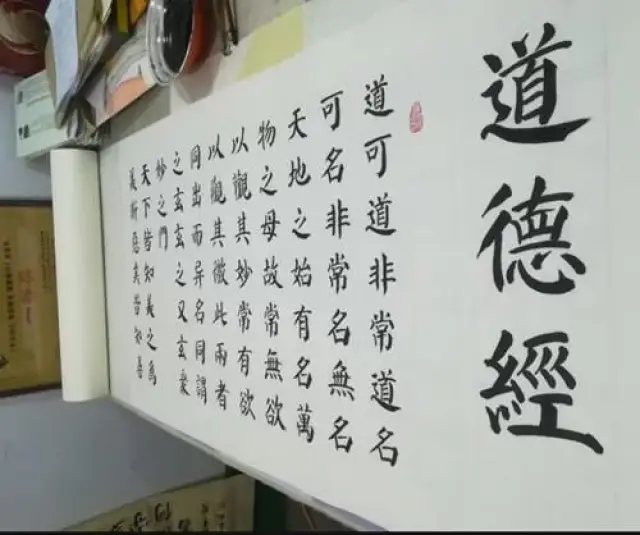 道德經
道可道非常道名
可名非常名無名
天地之始有名萬
物之母故常無欲
以觀其妙常有欲
以觀其徼此兩者
同出而异名同謂
之玄玄之又玄衆
妙之門
天下皆知美之為
美斯惡其皆知善